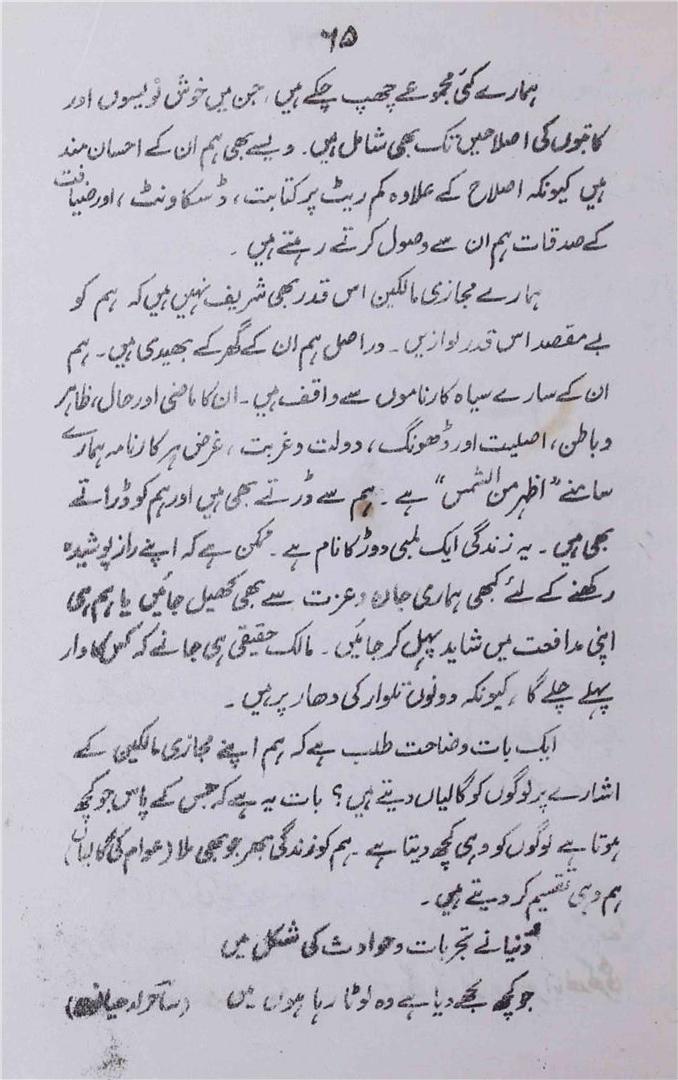 ۶۵
ہمارے کئی مجموعے چھپ چکے ہیں، جن میں خوش نویسوں اور
کاتبوں کی اصلاحیں تک بھی شامل ہیں۔ ویسے بھی ہم ان کے احسان مند
ہیں کیونکہ اصلاح کے علاوہ کم ریٹ پر کتابت، ڈسکاونٹ، اور ضیافت
کے صدقات ہم ان سے وصول کرتے رہتے ہیں۔
ہمارے مجازی مالکین اس قدر بھی شریف نہیں ہیں کہ ہم کو
بے مقصد اس قدر نوازیں۔ دراصل ہم ان کے گھر کے بھیدی ہیں۔ ہم
ان کے سارے سیاہ کارناموں سے واقف ہیں۔ ان کا ماضی اور حال، ظاہر
و باطن، اصلیت اور ڈھونگ، دولت و غربت، غرض ہر کارنامہ ہمارے
سامنے "اظہر من الشمس" ہے۔ ہم سے ڈرتے بھی ہیں اور ہم کو ڈراتے
بھی ہیں۔ یہ زندگی ایک لمبی دوڑ کا نام ہے۔ ممکن ہے کہ اپنے راز پوشیدہ
رکھنے کے لئے کبھی ہماری جان و عزت سے بھی کھیل جائیں یا ہم ہی
اپنی مدافعت میں شاید پہل کر جائیں۔ مالک حقیقی ہی جانے کہ کس کا وار
پہلے چلے گا، کیونکہ دونوں تلوار کی دھار پر ہیں۔
ایک بات وضاحت طلب ہے کہ ہم اپنے مجازی مالکین کے
اشارے پر لوگوں کو گالیاں دیتے ہیں؟ بات یہ ہے کہ جس کے پاس جو کچھ
ہوتا ہے لوگوں کو وہی کچھ دیتا ہے۔ ہم کو زندگی بھر جو بھی ملا (عوام کی گالیاں)
ہم وہی تقسیم کر دیتے ہیں۔
دنیا نے تجربات و حوادث کی شکل میں
جو کچھ مجھے دیا ہے وہ لوٹا رہا ہوں میں (ساحر لدھیانوی)